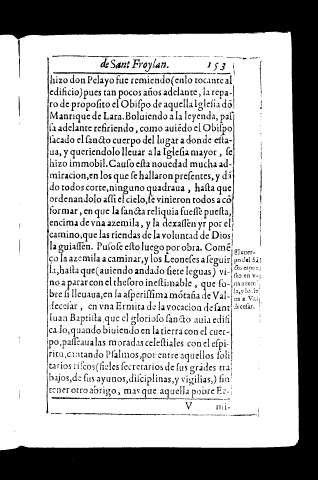 de Sant Froylan. 153
hizo don Pelayo fue remiendo (enlo tocante al
edificio) pues tan pocos años adelante, la repa-
ro de proposito el Obispo de aquella Iglesia dõ
Manrique de Lara. Boluiendo a la leyenda, pas
sa adelante refiriendo, como auiẽdo el Obispo
sacado el sancto cuerpo del lugar a donde esta-
ua, y queriendolo lleuar a la Iglesia mayor, se
hizo immobil. Causo esta nouedad mucha ad-
miracion, en los que se hallaron presentes, y dã
do todos corte, ninguno quadraua, hasta que
ordenandolo assi el cielo, se vinieron todos a cõ
formar, en que la sancta reliquia fuesse puesta,
encima de vna azemila, y la dexassen yr por el
camino, que las riendas de la voluntad de Dios
la guiassen. Pusose esto luego por obra. Comẽ
ço la azemila a caminar, y los Leoneses a seguir
la, hasta que (auiendo andado siete leguas) vi-
no a parar con el thesoro inestimable, que so-
bre si lleuaua, en la asperissima mõtaña de Val-
decesar, en vna Ermita de la vocacion de sant
Iuan Baptista, que el glorioso sancto auia edifi
cado, quando biuiendo en la tierra con el cuer-
po, passeaua las moradas celestiales con el espi-
ritu, cantando Psalmos, por entre aquellos soli
tarios riscos (fieles secretarios de sus grãdes tra
bajos, de sus ayunos, disciplinas, y vigilias,) sin
tener otro abrigo, mas que aquella pobre Er-
V mi-
El cuer-
po del Sã